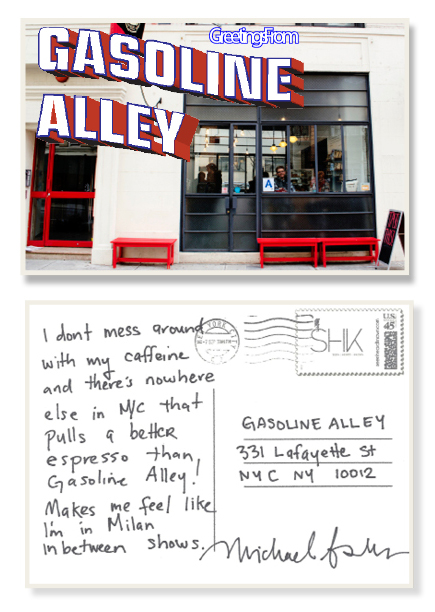 Greetings From
GASOLINE
ALLEY
A
I dont mess around
with my caffeine
and there's nowhere
else in NYC that
pulls a better
espresso than,
Gasoline Alley!
Makes me feel like
I'm in Milan
in between shows.
SHK
U.S.
45
GASOLINE ALLEY
331 Lafayette St
NYC NY 10012
Michael